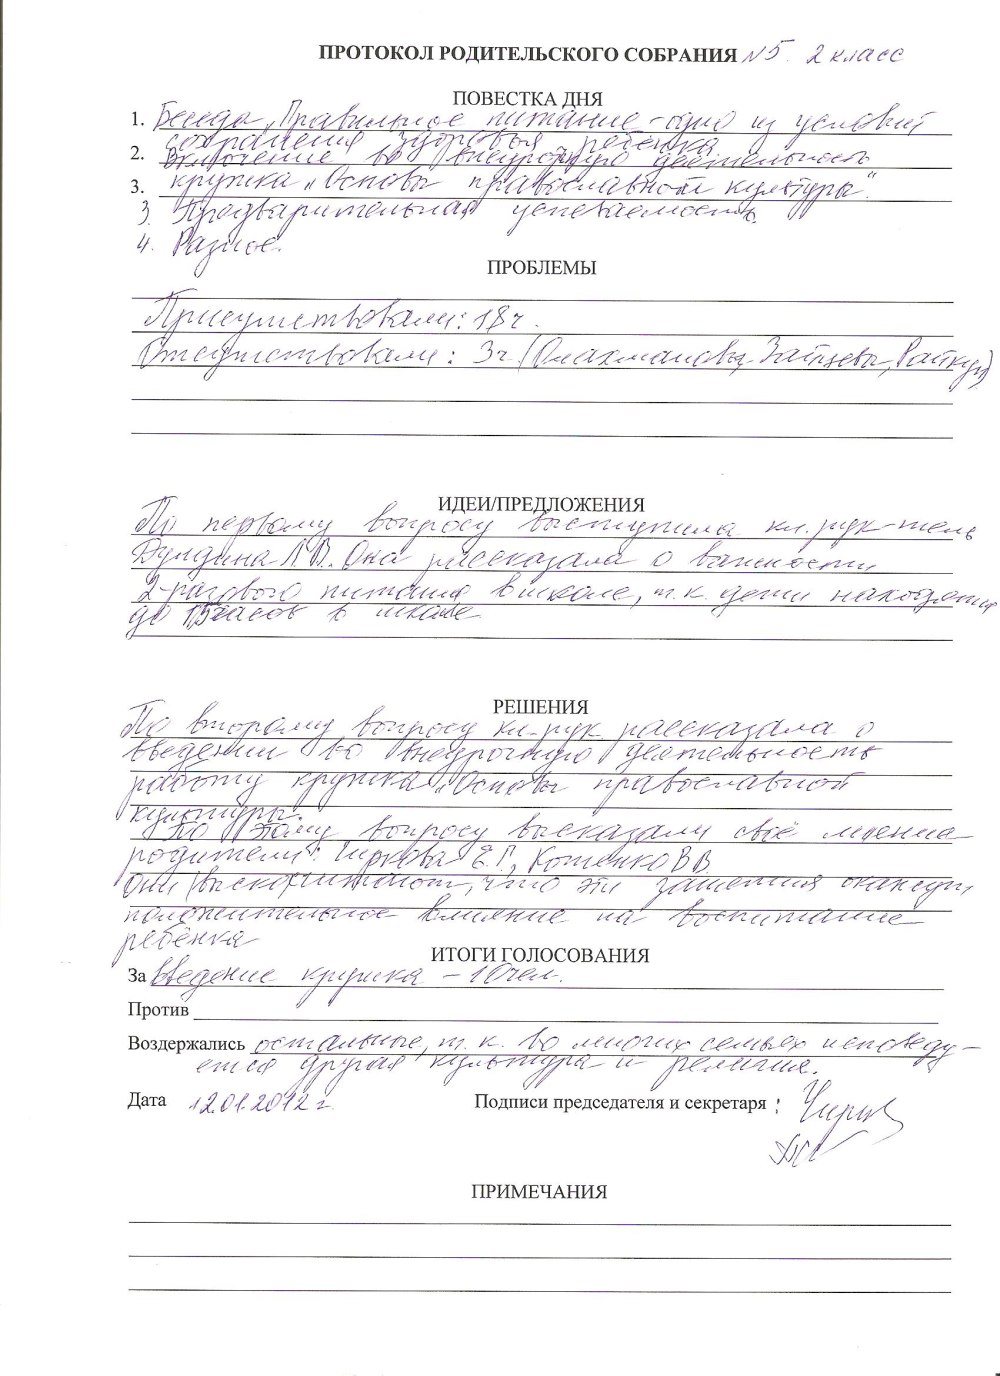 ПРОТОКОЛ РОДИТЕЛЬСКОГО СОБРАНИЯ №5. 2 класс
ПОВЕСТКА ДНЯ
1. Беседа „Правильное питание – одно из условий
сохранения здоровья ребёнка
2. Включение во внеурочную деятельность
3. кружка „Основы православной культуры".
3. Предварительная успеваемость.
4. Разное.
ПРОБЛЕМЫ
Присутствовали: 18 ч.
Отсутствовали: 3 ч (Зайцевы,
ИДЕИ/ПРЕДЛОЖЕНИЯ
По первому вопросу выступила кл. рук-тель
Л.В. Она рассказала о важности
2-разового питания в школе, т.к. дети находятся
до 15 часов в школе
РЕШЕНИЯ
По второму вопросу кл. рук. рассказала о
введении во внеурочную деятельность
работу кружка „Основы православной
культуры.
По этому вопросу высказали своё мнение
родители: Чиркова Е.Г., Котенко В.В.
Они считают, что эти занятия окажут
положительное влияние на воспитание
ребёнка
ИТОГИ ГОЛОСОВАНИЯ
За введение кружка – 10 чел.
Против
Воздержались остальные, т.к. во многих семьях исповеду-
ется другая культура и религия.
Дата 12.01.2012 г. Подписи председателя и секретаря :
ПРИМЕЧАНИЯ